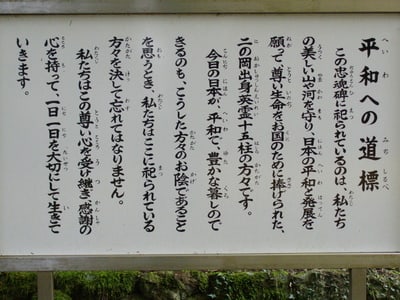 平和への道標
この忠魂碑に祀られているのは、私たち
の美しい山や河を守り、日本の平和と発展を
願って、尊い生命をお国のために捧げられた、
二の岡出身英霊十五柱の方々です。
今日の日本が、平和で、豊かな暮しので
きるのも、こうした方々のお陰であること
を思うとき、私たちはここに祀られている
方々を決して忘れてはなりません。
私たちはこの尊い心を受け継ぎ、感謝の
心を持って、一日一日を大切にして生きて
いきます。